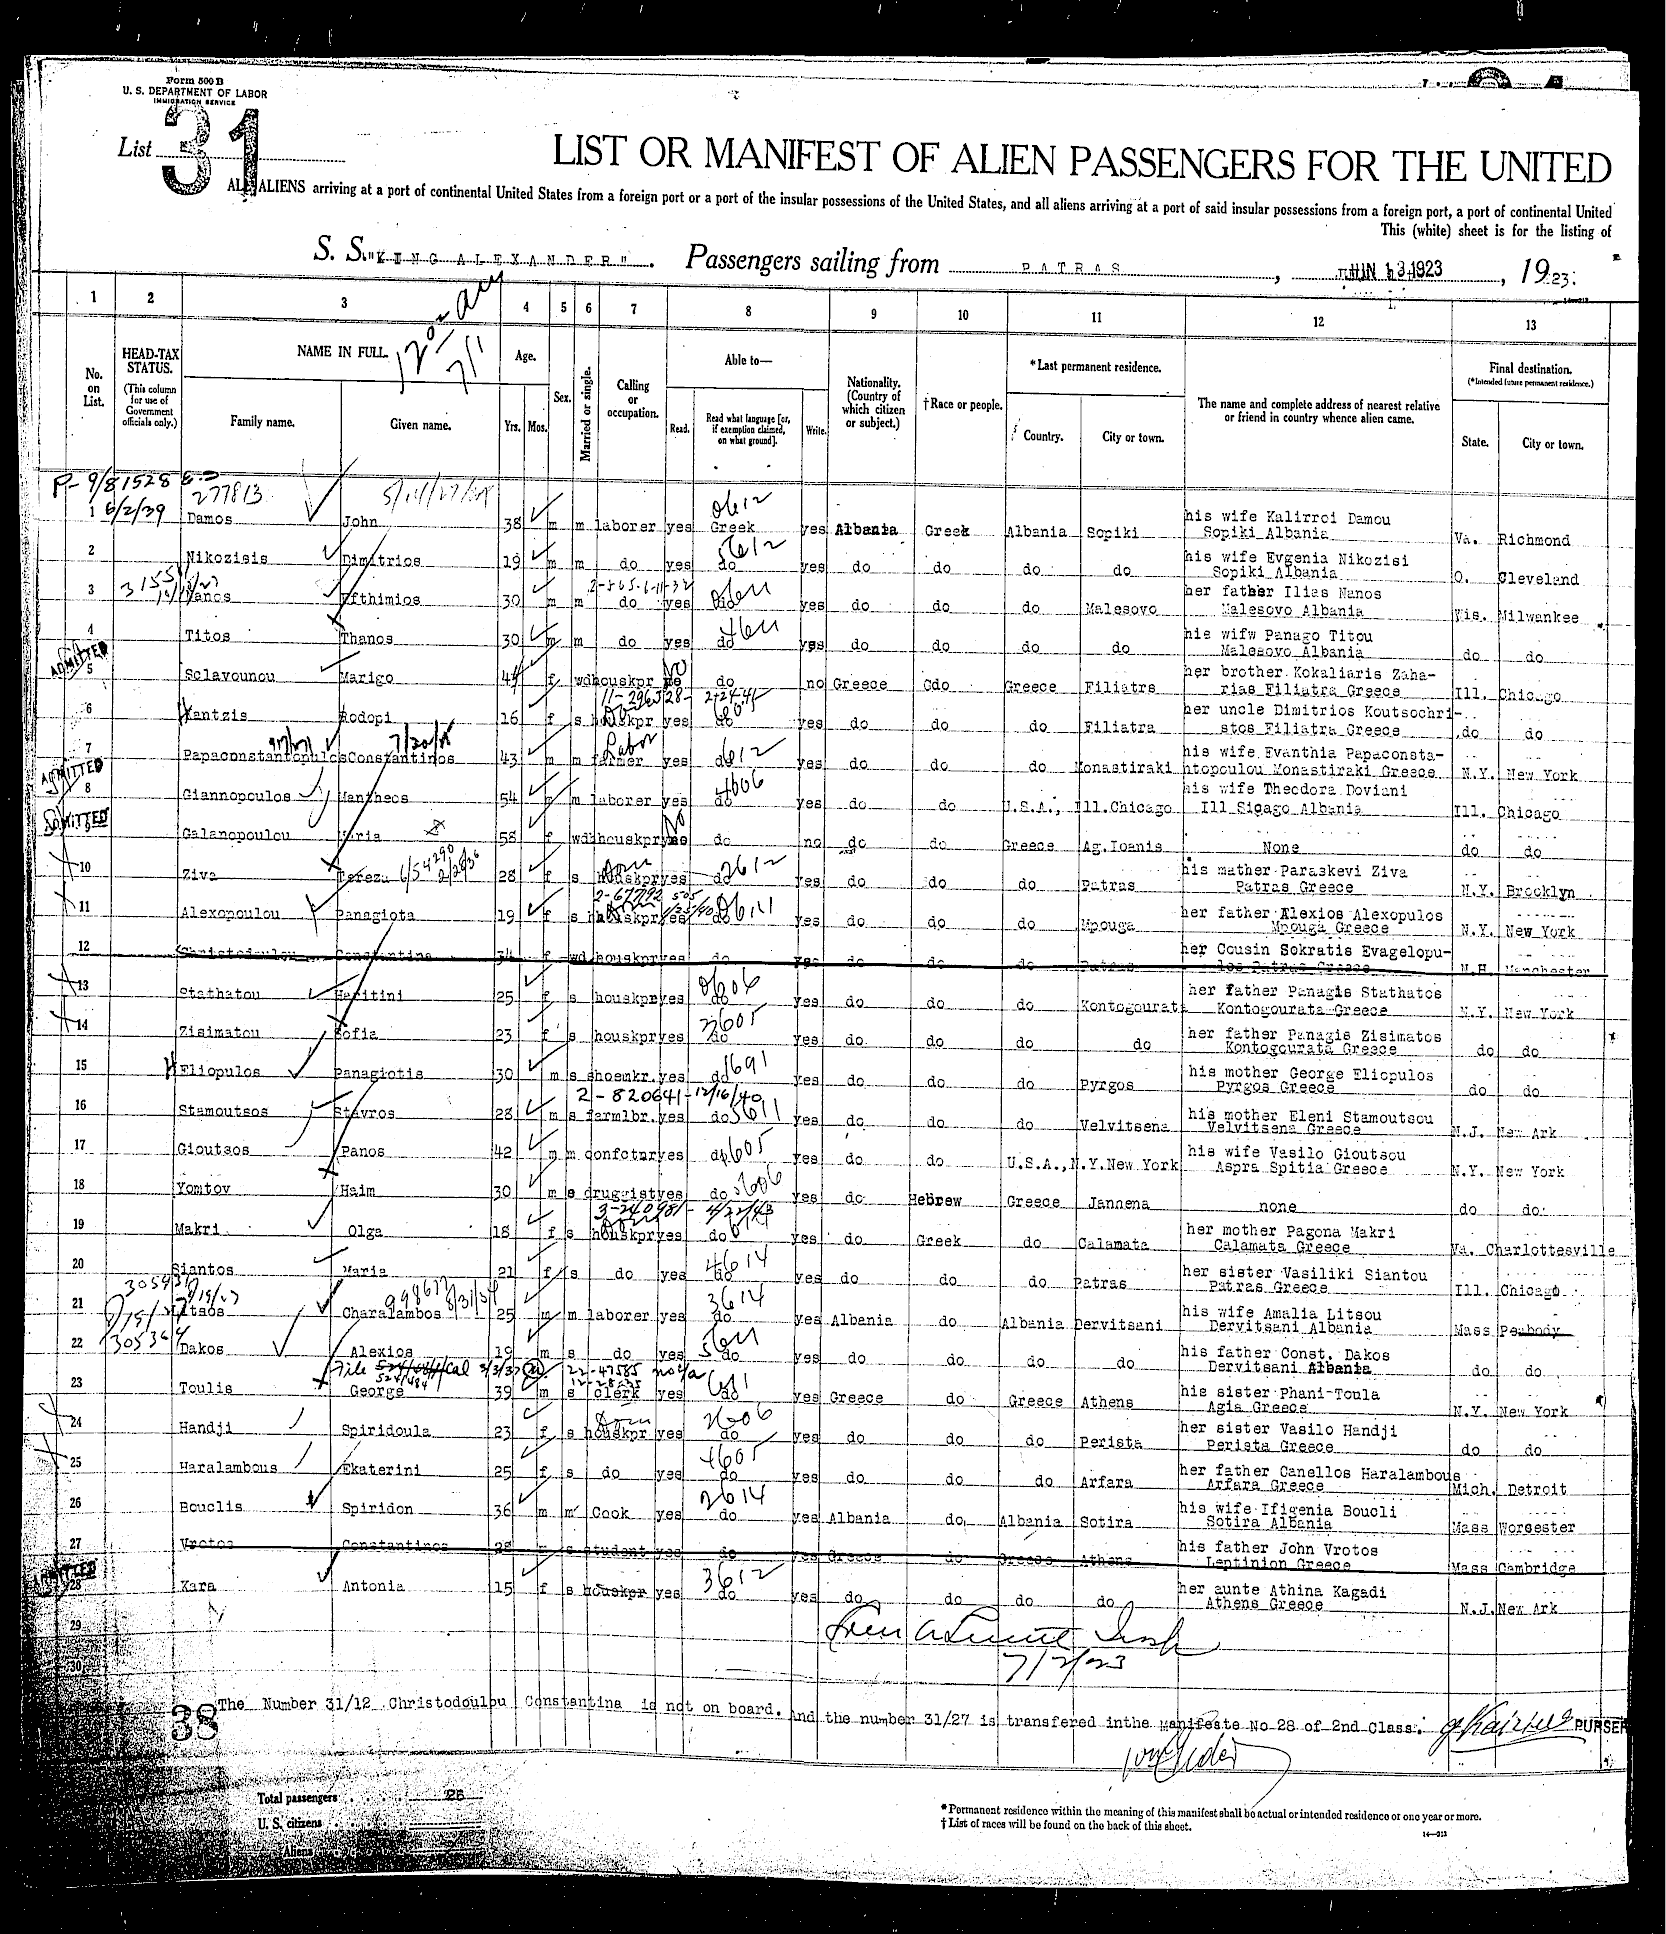 Form 500 B
U. S. DEPARTMENT OF LABOR
IMMIGRATION SERVICE
List 31
LIST OR MANIFEST OF ALIEN PASSENGERS FOR THE UNITED
ALL ALIENS arriving at a port of continental United States from a foreign port or a port of the insular possessions of the United States, and all aliens arriving at a port of said insular possessions from a foreign port, a port of continental United
This (white) sheet is for the listing of
S. S. "KING ALEXANDER". Passengers sailing from PATRAS, JUN 13 1923, 1923.
1 2 3 4 5 6 7 8 9 10 11 12 13
No. on List. HEAD-TAX STATUS. (This column for use of Government officials only.) NAME IN FULL. Family name. Given name. Age. Yrs. Mos. Sex. Married or single. Calling or occupation. Able to— Read. Read what language [or, if exemption claimed, on what ground]. Write. Nationality. (Country of which citizen or subject.) †Race or people. *Last permanent residence. Country. City or town. The name and complete address of nearest relative or friend in country whence alien came. Final destination. (*Intended future permanent residence.) State. City or town.
P- 9/81528
277813
1 6/2/39 Damos John 38 m m laborer yes Greek yes Albania Greek Albania Sopiki his wife Kalirroi Damou Sopiki Albania Va. Richmond
2 Nikozisis Dimitrios 19 m m do yes do yes do do do do his wife Evgenia Nikozisi Sopiki Albania O. Cleveland
3 Nanos Efthimios 30 m m do yes do yes do do do Malesovo her father Ilias Nanos Malesovo Albania Wis. Milwankee
4 Titos Thanos 30 m m do yes do yes do do do do his wifw Panago Titou Malesovo Albania do do
ADMITTED
5 Sclavounou Marigo 44 f wd houskpr No do no Greece do Greece Filiatra her brother Kokaliaris Zaha- rias Filiatra Greece Ill. Chicago
6 Xantzis Rodopi 16 f s houskpr yes do yes do do do Filiatra her uncle Dimitrios Koutsochri- stos Filiatra Greece do do
7 Papaconstantopulos Constantinos 43 m m farmer yes do yes do do do Monastiraki his wife Evanthia Papaconsta- ntopoulou Monastiraki Greece N.Y. New York
ADMITTED
8 Giannopoulos Mantheos 54 m m laborer yes do yes do do U.S.A., Ill.Chicago his wife Theodora Doviani Ill Sicago Albania Ill. Chicago
ADMITTED
9 Galanopoulou Maria 58 f wd houskpr No do no do do Greece Ag.Ioanis None do do
10 Ziva Tereza 28 f s houskpr yes do yes do do do Patras his mather Paraskevi Ziva Patras Greece N.Y. Brooklyn
11 Alexopoulou Panagiota 19 f s houskpr yes do yes do do do Mpouga her father Alexios Alexopulos Mpouga Greece N.Y. New York
12 Christodoulou Constantina 34 f wd houskpr yes do yes do do do Patras her Cousin Sokratis Evagelopu- los Patras Greece N.H. Manchester
13 Stathatou Haritini 25 f s houskpr yes do yes do do do Kontogourata her father Panagis Stathatos Kontogourata Greece N.Y. New York
14 Zisimatou Sofia 23 f s houskpr yes do yes do do do do her father Panagis Zisimatos Kontogourata Greece do do
15 Eliopulos Panagiotis 30 m s shoemkr. yes do yes do do do Pyrgos his mother George Eliopulos Pyrgos Greece do do
2-820641-12/16/40
16 Stamoutsos Stavros 28 m s farmlbr. yes do yes do do do Velvitsena his mother Eleni Stamoutsou Velvitsena Greece N.J. New Ark
17 Gioutsos Panos 42 m m confctnr yes do yes do do U.S.A., N.Y.New York his wife Vasilo Gioutsou Aspra Spitia Greece N.Y. New York
18 Yomtov Haim 30 m s druggist yes do yes do Hebrew Greece Jannena none do do
19 Makri Olga 18 f s houskpr yes do yes do Greek do Calamata her mother Pagona Makri Calamata Greece Va. Charlottesville
20 Siantos Maria 21 f s do yes do yes do do do Patras her sister Vasiliki Siantou Patras Greece Ill. Chicago
21 Litsos Charalambos 25 m m laborer yes do yes Albania do Albania Dervitsani his wife Amalia Litsou Dervitsani Albania Mass Peabody
22 Dakos Alexios 19 m s do yes do yes do do do do his father Const. Dakos Dervitsani Albania do do
23 Toulis George 39 m s clerk yes do yes Greece do Greece Athens his sister Phani-Toula Agia Greece N.Y. New York
24 Handji Spiridoula 23 f s houskpr yes do yes do do do Perista her sister Vasilo Handji Perista Greece do do
25 Haralambous Ekaterini 25 f s do yes do yes do do do Arfara her father Canellos Haralambous Arfara Greece Mich. Detroit
26 Bouclis Spiridon 36 m m Cook yes do yes Albania do Albania Sotira his wife Ifigenia Boucli Sotira Albania Mass Worcester
27 Vrotos Constantinos 28 m s student yes do yes Greece do Greece Athens his father John Vrotos Leptinion Greece Mass Cambridge
ADMITTED
28 Kara Antonia 15 f s houskpr yes do yes do do do do her aunte Athina Kagadi Athens Greece N.J. New Ark
29
7/2/23
30
38 The Number 31/12 Christodoulou Constantina is not on board. And the number 31/27 is transfered inthe Manifeste No 28 of 2nd Class. PURSER
Total passengers 26
U. S. citizens
Aliens
*Permanent residence within the meaning of this manifest shall be actual or intended residence of one year or more.
†List of races will be found on the back of this sheet.
14—213